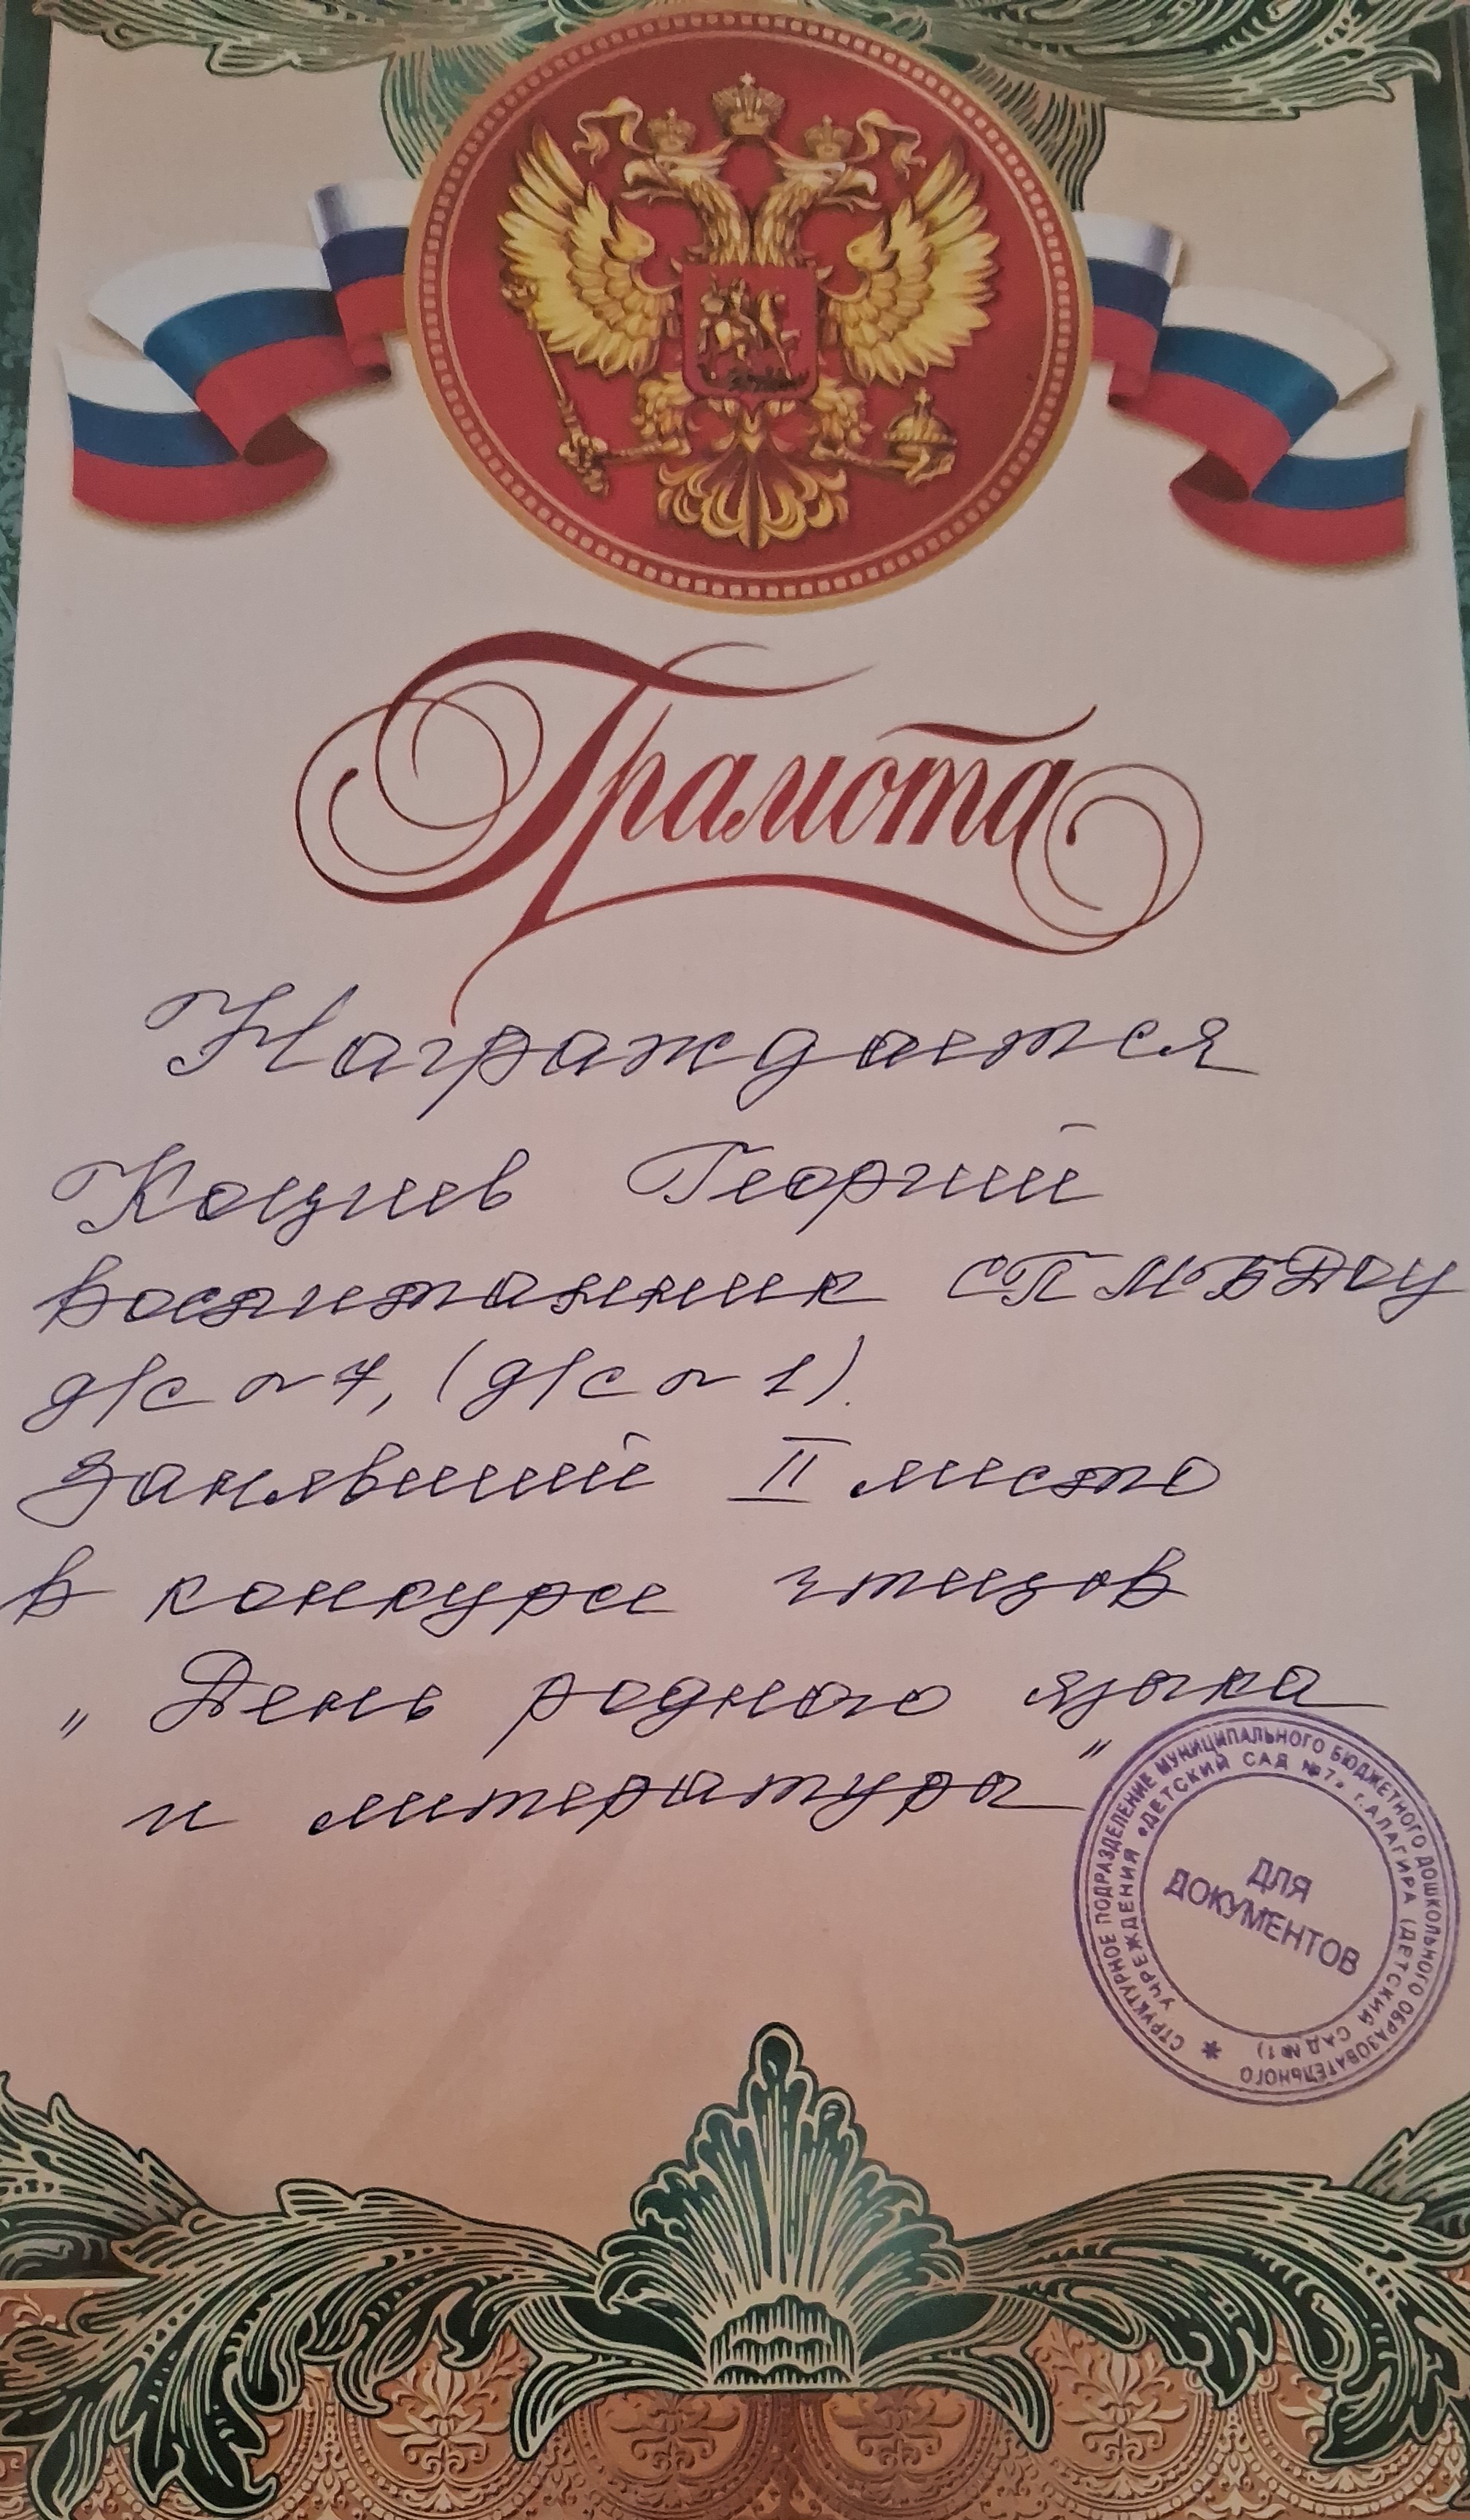 Грамота
Награждается
Коциев Георгий
воспитанник СП МБДОУ
д/с №7, (д/с №1).
занявший II место
в конкурсе чтецов
„День родного языка
и литература"
СТРУКТУРНОЕ ПОДРАЗДЕЛЕНИЕ МУНИЦИПАЛЬНОГО БЮДЖЕТНОГО ДОШКОЛЬНОГО ОБРАЗОВАТЕЛЬНОГО
УЧРЕЖДЕНИЯ «ДЕТСКИЙ САД №7» г. АЛАГИРА (ДЕТСКИЙ САД №1)
ДЛЯ
ДОКУМЕНТОВ